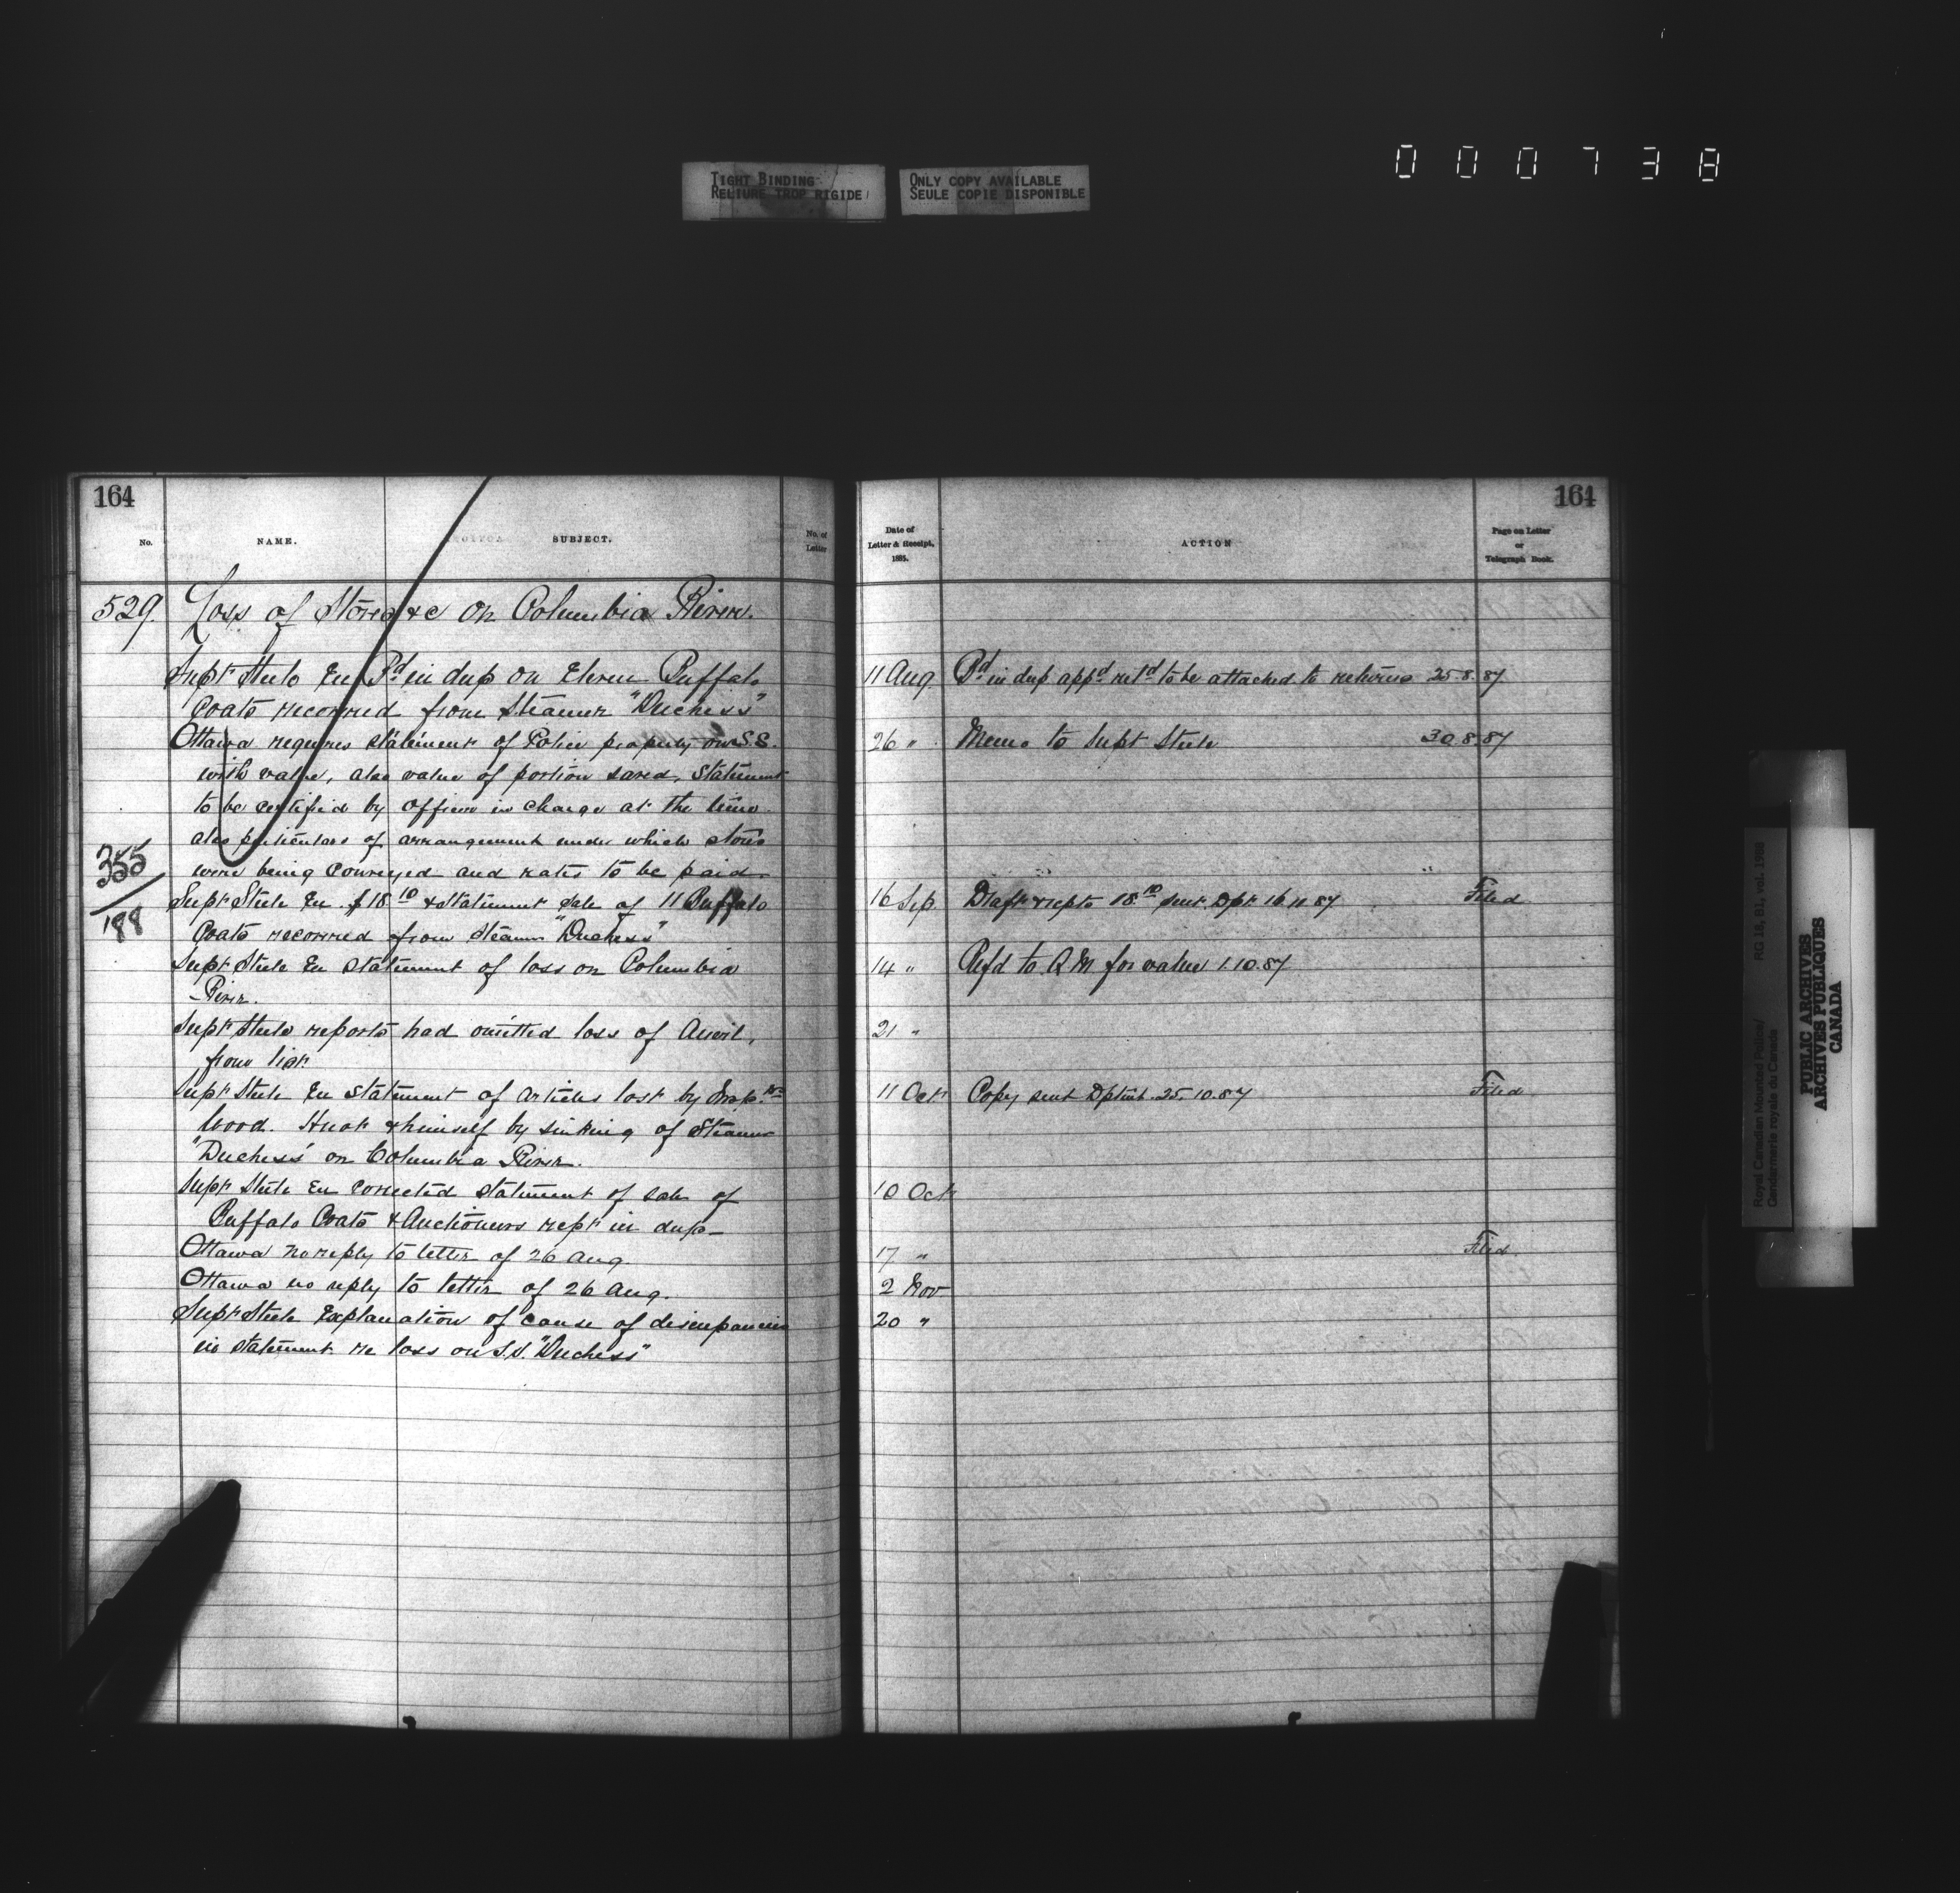 000738
TIGHT BINDING
RELIURE TROP RIGIDE
ONLY COPY AVAILABLE
SEULE COPIE DISPONIBLE
164
No.
NAME.
SUBJECT.
No. of
Letter
529. Loss of Stores &c on Columbia River.
Supt Steele En Bd in dup on Eleven Buffalo
Coats recovered from Steamer "Duchess"
Ottawa requires statement of Police property on S.S.
with value, also value of portion saved, Statement
to be certified by officer in charge at the time
also particulars of arrangement under which stores
were being conveyed and rates to be paid
355
/88
Supt Steele En $18.10 & Statement Sale of 11 Buffalo
Coats recovered from Steamer "Duchess"
Supt Steele En statement of loss on Columbia
River.
Supt Steele reports had omitted loss of Anvil,
from list.
Supt Steele En statement of articles lost by Insprs
Wood. Huot & himself by sinking of Steamer
"Duchess" on Columbia River.
Supt Steele En corrected statement of sale of
Buffalo Coats & Auctioneers rept in dup
Ottawa no reply to letter of 26 Aug
Ottawa no reply to letter of 26 Aug.
Supt Steele Explanation of cause of discrepancies
in statement re loss on S.S. "Duchess"
164
Date of
Letter & Receipt,
1885.
ACTION
Page on Letter
or
Telegraph Book.
11 Aug Bd in dup appd retd to be attached to returns 25.8.87
26 " Memo to Supt Steele 30.8.87
16 Sep Draft & repts 18.10 sent Dpt. 16.11.87 Filed
14 " Refd to QM for value 1.10.87
21 "
11 Oct Copy sent Dptmt. 25.10.87 Filed
10 Oct
17 " Filed.
2 Nov
20 "
Royal Canadian Mounted Police/
Gendarmerie royale du Canada
RG 18, B1, vol. 1988
PUBLIC ARCHIVES
ARCHIVES PUBLIQUES
CANADA